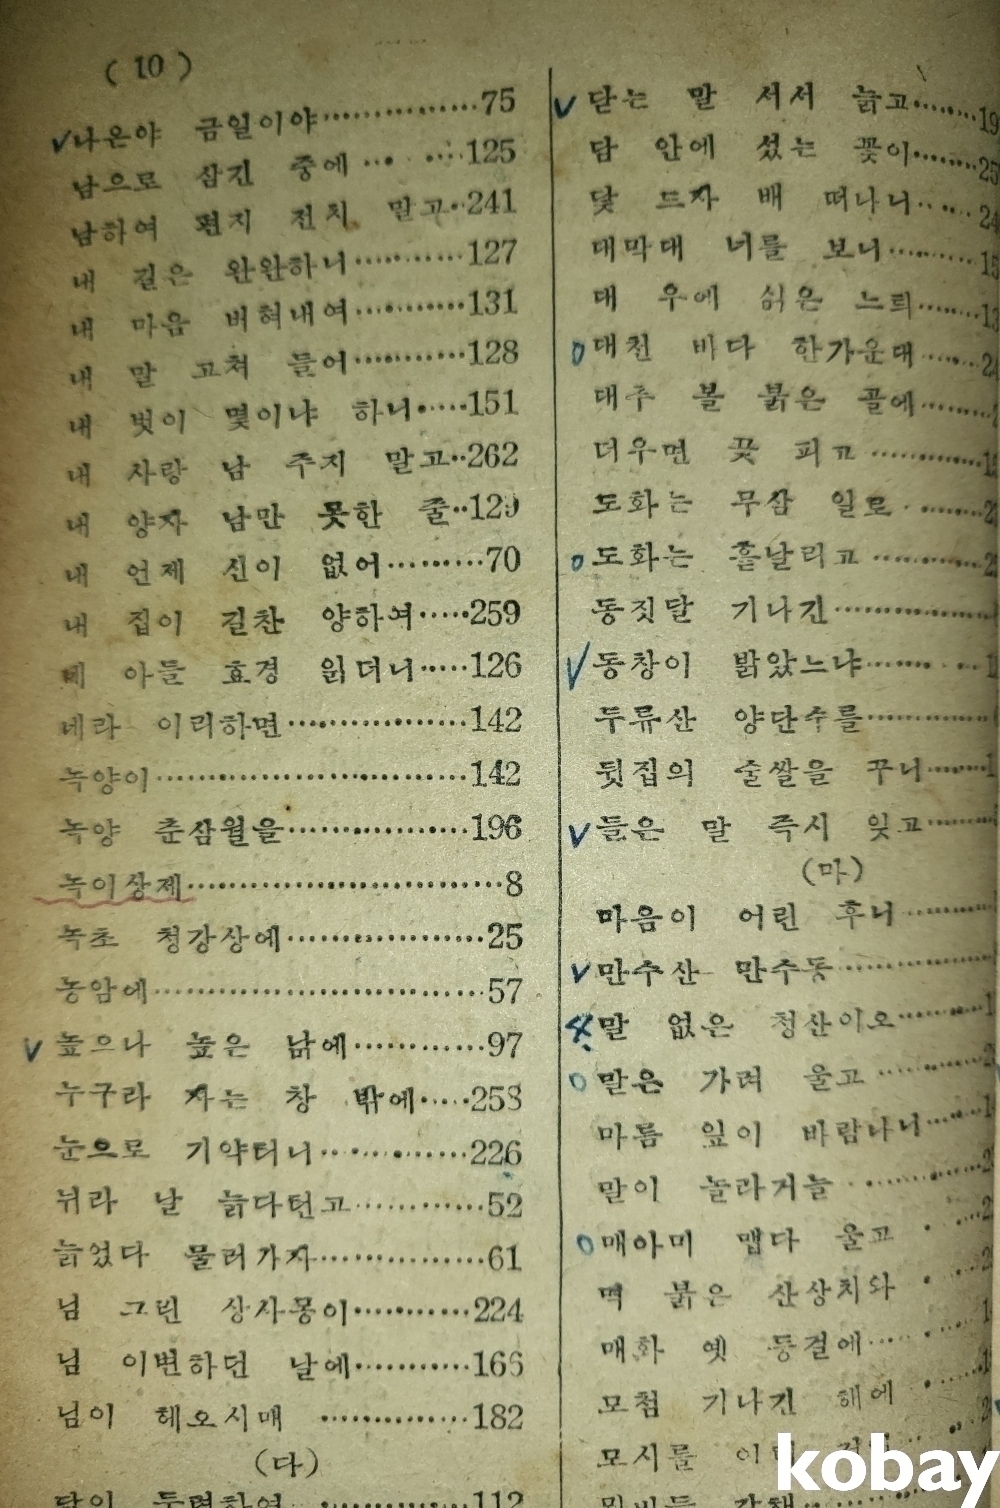 ( 10 )
나온야 금일이야……………75
남으로 삼긴 중에… …125
남하여 편지 전치 말고··241
내 길은 완완하니…………127
내 마음 버혀내여…………131
내 말 고쳐 들어…………128
내 벗이 몇이냐 하니……151
내 사랑 남 주지 말고··262
내 양자 남만 못한 줄··129
내 언제 신이 없어………70
내 집이 길찬 양하여……259
네 아들 효경 읽더니……126
네라 이리하면………………142
녹양이…………………………142
녹양 춘삼월을………………196
녹이상제………………………8
녹초 청강상에………………25
농암에…………………………57
높으나 높은 낡에…………97
누구라 자는 창 밖에……258
눈으로 기약터니……………226
뉘라 날 늙다턴고…………52
늙었다 물러가자……………61
님 그린 상사몽이…………224
님 이별하던 날에…………166
님이 헤오시매 ……………182
(다)
112
닫는 말 서서 늙고……19
담 안에 섰는 꽃이……25
닻 드자 배 떠나니……24
대막대 너를 보니………15
대 우에 심은 느틔……13
대천 바다 한가운대……24
대추 볼 붉은 골에……
더우면 꽃 피고…………
도화는 무삼 일로………
도화는 흩날리고…………
동짓달 기나긴……………
동창이 밝았느냐…………
두류산 양단수를…………
뒷집의 술쌀을 꾸니……
들은 말 즉시 잊고……
(마)
마음이 어린 후니………
만수산 만수동……………
말 없은 청산이오………
말은 가려 울고…………
마름 잎이 바람나니……
말이 놀라거늘……………
매아미 맵다 울고………
멱 붉은 산상치와………
매화 옛 등걸에…………
모첨 기나긴 해에………
모시를
kobay